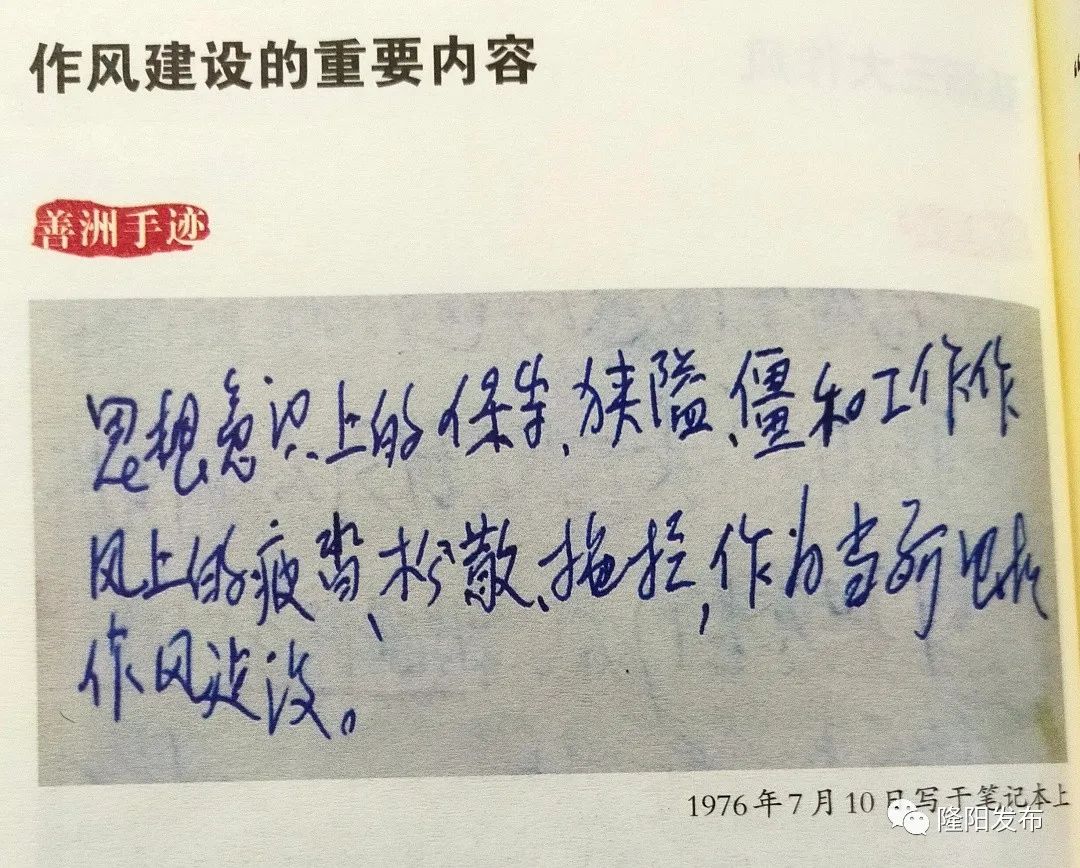 作风建设的重要内容
善洲手迹
思想意识上的保守、狭隘、僵和工作作
风上的疲沓、松散、拖拉,作为当前思想
作风建设。
1976年7月10日写于笔记本上
隆阳发布